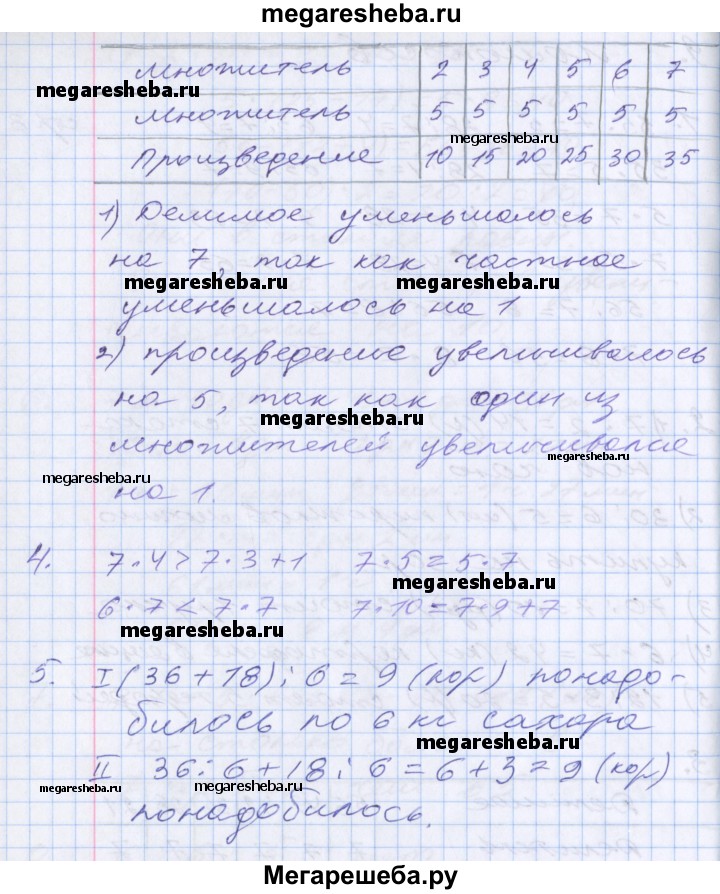 megaresheba.ru
Множитель 2 3 4 5 6 7
megaresheba.ru
Множитель 5 5 5 5 5 5
megaresheba.ru
Произведение 10 15 20 25 30 35
1) Делимое уменьшалось
на 7, так как частное
megaresheba.ru megaresheba.ru
уменьшалось на 1
2) произведение увеличивалось
на 5, так как один из
megaresheba.ru
множителей увеличивался
megaresheba.ru
megaresheba.ru
на 1.
4. 7·4>7·3+1 7·5=5·7
megaresheba.ru
6·7<7·7 7·10=7·9+7
megaresheba.ru
5. I (36+18):6=9 (кор) понадо-
билось по 6 кг сахара
megaresheba.ru
II 36:6+18:6=6+3=9 (кор)
megaresheba.ru megaresheba.ru
понадобилось.
Мегарешеба.ру